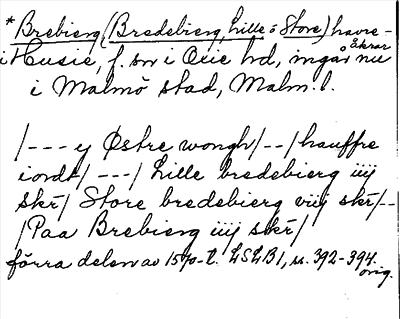 *Brebierg (Bredebierg, Lille ó Store) havre-
åkrar
i Husie, f. sn i Oxie hd, ingår nu
i Malmö stad, Malm. l.
/--- y Østre wongh/--/hauffre
iordt/---/Lille bredebierg iiij
skr/ Store bredebierg viij skr/--
/Paa Brebierg iiij skr/
förra delen av 1570-t. LSLB 1, ss. 392-394.
orig.